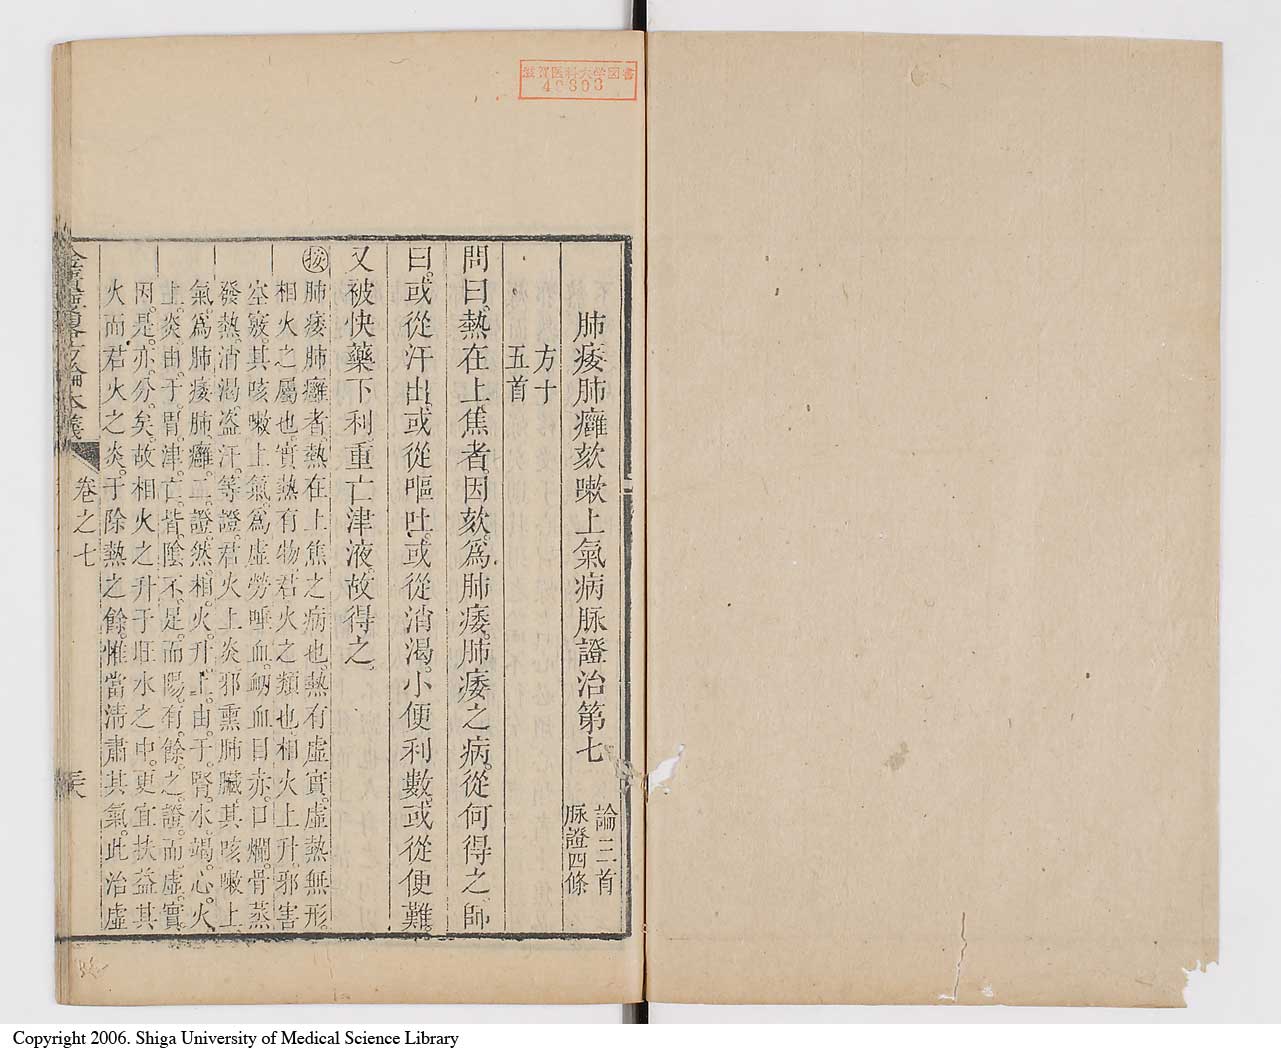 滋賀医科大学図書
40803
肺痿肺癰欬嗽上氣病脉證治第七
論三首
脉證四條
方十
五首
問曰。熱在上焦者。因欬。爲肺痿。肺痿之病。從何得之。師
曰。或從汗出。或從嘔吐。或從消渴。小便利數。或從便難。
又被快藥下利。重亡津液。故得之。
按肺痿肺癰者。熱在上焦之病也。熱有虛實。虛熱無形。
相火之屬也。實熱有物。君火之類也。相火上升。邪害
空竅。其咳嗽上氣。爲虛勞唾血。衂血目赤。口爛。骨蒸
發熱。消渴。盗汗。等證。君火上炎。邪熏肺臟。其咳嗽上
氣。爲肺痿肺癰。二證。然相火升上。由于腎水竭。心火
上炎。由于胃津亡。皆陰不足。而陽有餘之證。而虛實
因是亦分矣。故相火之升于旺水之中。更宜扶益其
火。而君火之炎。于除熱之餘。惟當清肅其氣。此治虛
金匱要略方論本義
卷之七
Copyright 2006. Shiga University of Medical Science Library